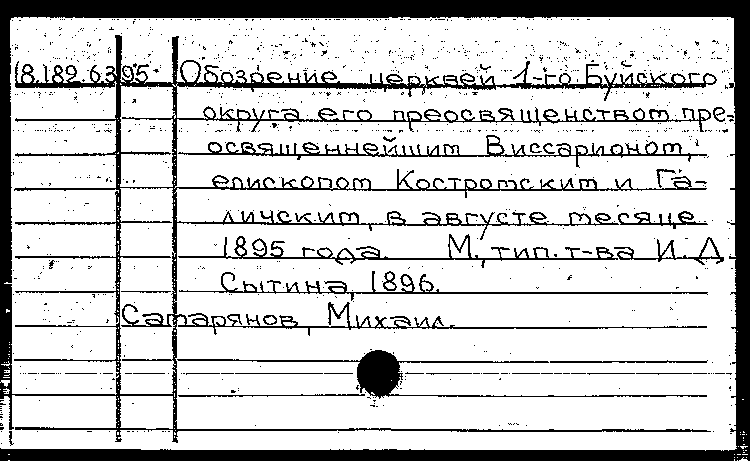 18.182.6.395. Обозрение церквей 1-го Буйского
округа его преосвященством пре-
освященнейшим Виссарионом,
епископом Костромским и Га-
личским, в августе месяце
1895 года. М., тип. т-ва И. Д.
Сытина, 1896.
Сатарянов, Михаил.